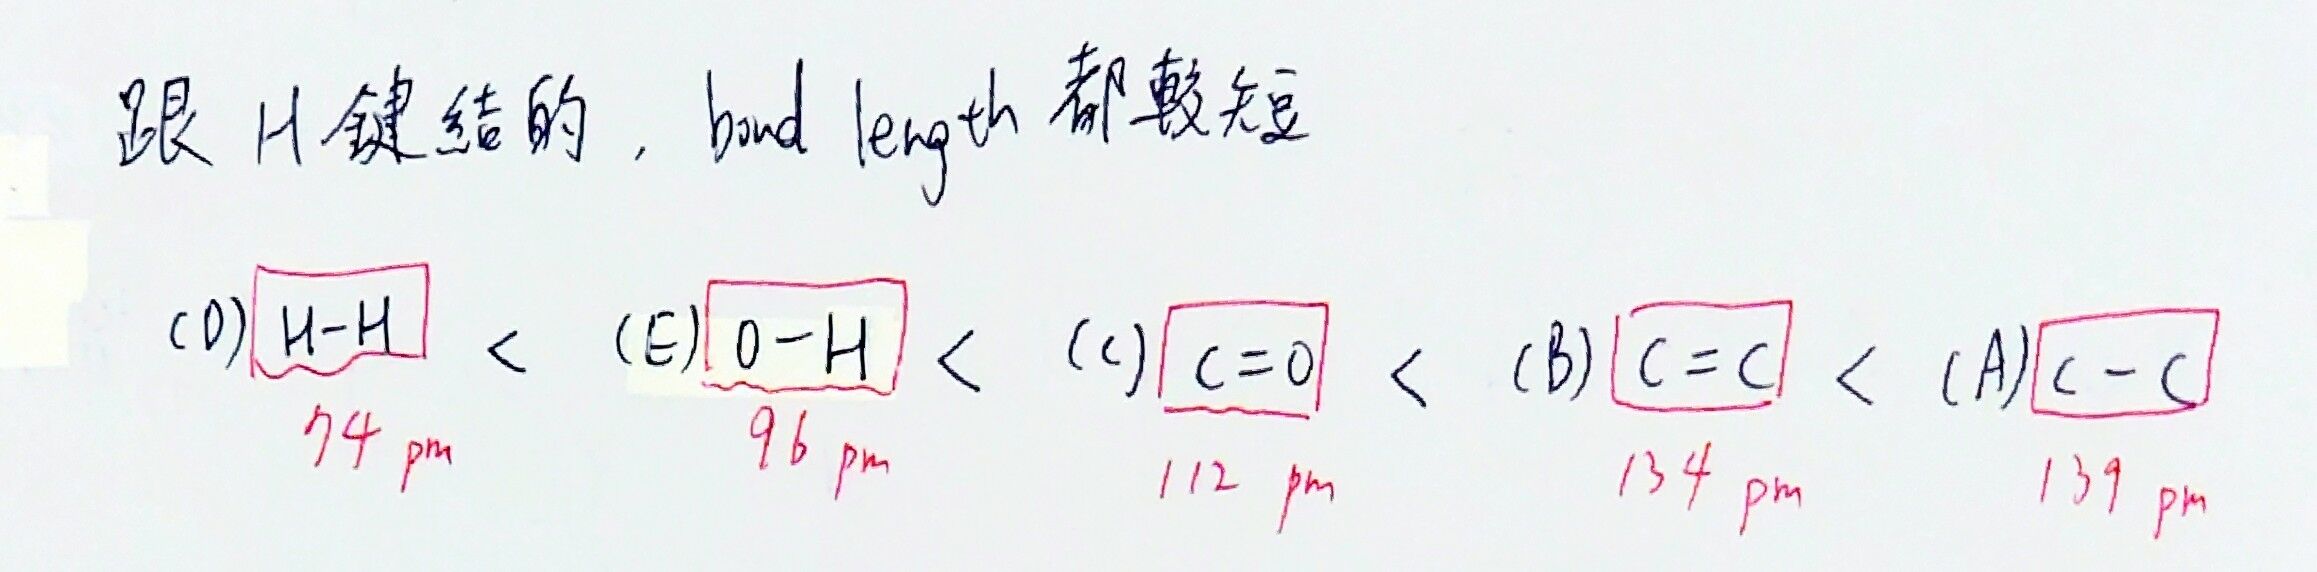 跟 H 鍵結的, bond length 都較短
(D) H-H < (E) O-H < (C) C=O < (B) C=C < (A) C-C
74 pm 96 pm 112 pm 134 pm 139 pm